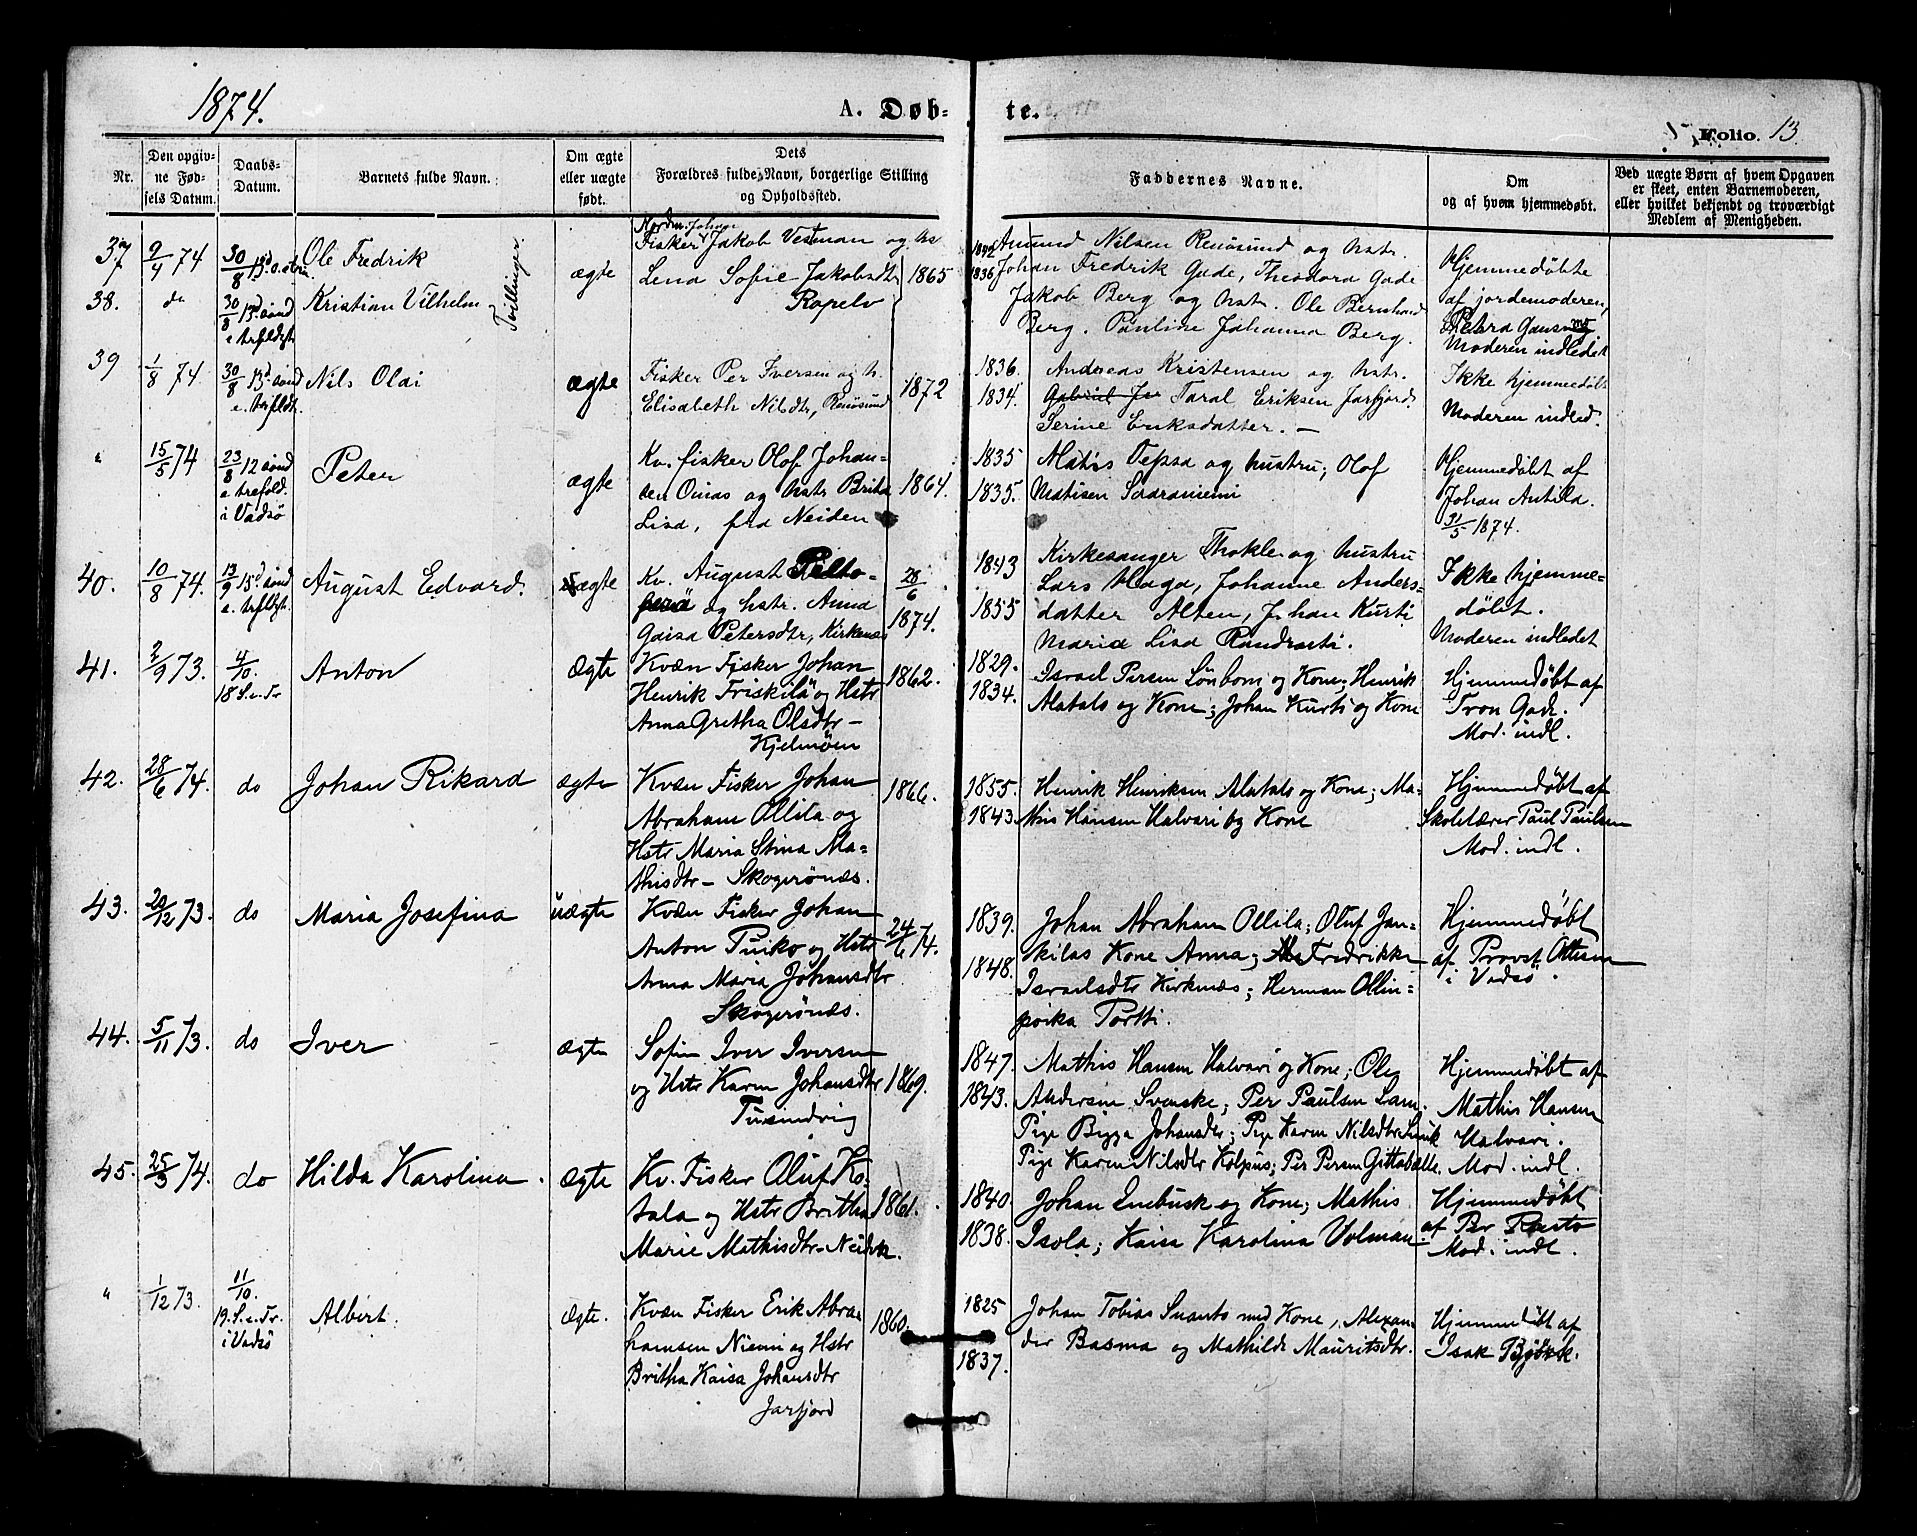 1874.
A. Døb-
te.
Folio. 13.
Nr.
Den opgiv-
ne Fød-
sels Datum.
Daabs-
Datum.
Barnets fulde Navn.
Om ægte
eller uægte
født.
Dets
Forældres fulde Navn, borgerlige Stilling
og Opholdssted.
Faddernes Navne.
Om
og af hvem hjemmedøbt.
Ved uægte Børn af hvem Opgaven
er skeet, enten Barnemoderen,
eller hvilket bekjendt og troværdigt
Medlem af Menigheden.
37
9/4 74
30/8
Ole Fredrik
Tvillinger
ægte
Fisker Jakob Vestman og
Lena Sofie Jakobsdtr
Rapelv
1865
1842
1836
Amund Nilsen Renøsund og hstr.
Johan Fredrik Gade, Theodora Gade
Jakob Berg og hstr. Ole Bernhard
Berg. Pauline Johanna Berg.
Hjemmedøbte
af jordemoderen,
Petra
Moderen indledet
38.
do
30/8 13d. sønd
e trfldgt
Kristian Vilhelm
39
1/8 74.
30/8 13d. sønd
e. trfldt.
Nils Olai
Ægte
Fisker Per Iversen og h.
Elisabeth Nilsdtr, Renøsund
1872
1836.
1834.
Andreas Kristensen og hstr.
Taral Eriksen Jarfjord.
Serine Eriksdatter. —
Ikke hjemmedøbt
Moderen indled.
"
15/5 74
23/8 12 sønd
e trefold.
i Vadsø
Peter
ægte
Kv. fisker Olof Johan-
sen Oinas og hstr Brita
Lisa, fra Neiden
1864.
1835
1835.
Matis Tepsa og hustru; Olof
Matisen
Hjemmedøbt af
Johan Antila.
31/5 1874.
40.
10/8 74.
13/9 15d sønd
e. trfldgt.
August Edvard.
ægte
Kv. August Pelto-
og hstr. Anna
Gaisa Petersdtr, Kirkenæs
28/6
1874.
1843
1855
Kirkesanger Thokle og hustru
Lars Haga, Johanne Anders-
datter Alten, Johan Kurti
Maria Lisa
Ikke hjemme-
døbt.
Moderen indledet
41.
2/9 73.
4/10.
18 S. e. Tr
Anton
Ægte
Kvæn Fisker Johan
Henrik Friskilä og Hstr
Anna Gretha Olsdtr —
Kjelmøen
1862.
1829.
1834.
Israel Persen Lönbom og Kone; Henrik
Alatalo og Kone; Johan Kurti og Kone
Hjemmedøbt af
Tron Gade.
Mod. indl.
42.
28/6 74.
do
Johan Rikard
ægte
Kvæn Fisker Johan
Abraham Ollila og
Hstr Maria Stina Ma-
thisdtr — Skogerönæs.
1866.
1855.
1843.
Henrik Henriksen Alatalo og Kone; Ma-
this Hansen Halvari og Kone
Hjemmedøbt af
Skolelærer Paul Paulsen
Mod. indl.
43.
29/12 73.
do
Maria Josefina
uægte
Kvæn Fisker Johan
Anton Tuiko og Hstr
Anna Maria Johansdtr
Skogerönæs.
24/6 74.
1839.
1848.
Johan Abraham Ollila; Oluf Jan-
kilas Kone Anna; Fredrikke
Israelsdtr Kirkenæs; Herman Ollin-
poika Portti.
Hjemmedøbt
af Provst Ottesen
i Vadsø
44.
5/11 73.
do
Iver
ægte
Søfin Iver Iversen
og Hstr Karen Johansdtr
Tusindvig
1869.
1847.
1843.
Mathis Hansen Halvari og Kone; Ole
Andersen Svenske; Per Paulsen Sam.
Pige Bigga Johansdtr; Pige Karen Nilsdtr
Pige Karen Nilsdtr Kolpus; Per Persen Gittabælle.
Hjemmedøbt af
Mathis Hansen
Halvari.
Mod. indl.
45.
25/3 74.
do
Hilda Karolina.
Ægte
Kv. Fisker Oluf Ko-
tala og Hstr Britha
Marie Mathisdtr — Neiden.
1861.
1840.
1838.
Johan Enebusk og Kone; Mathis
Isola; Kaisa Karolina Volman
Hjemmedøbt
af Per Rasto
Mod. indl.
"
1/12 73.
11/10.
19. S. e. Tr.
i Vadsø
Albert.
Ægte.
Kvæn Fisker Erik Abra-
hamsen Niemi og Hstr
Britha Kaisa Johansdtr
Jarfjord
1860.
1825
1837.
Johan Tobias Suanto med Kone, Alexan-
der Basma og Mathilde Mauritsdtr.
Hjemmedøbt af
Isak Björk.